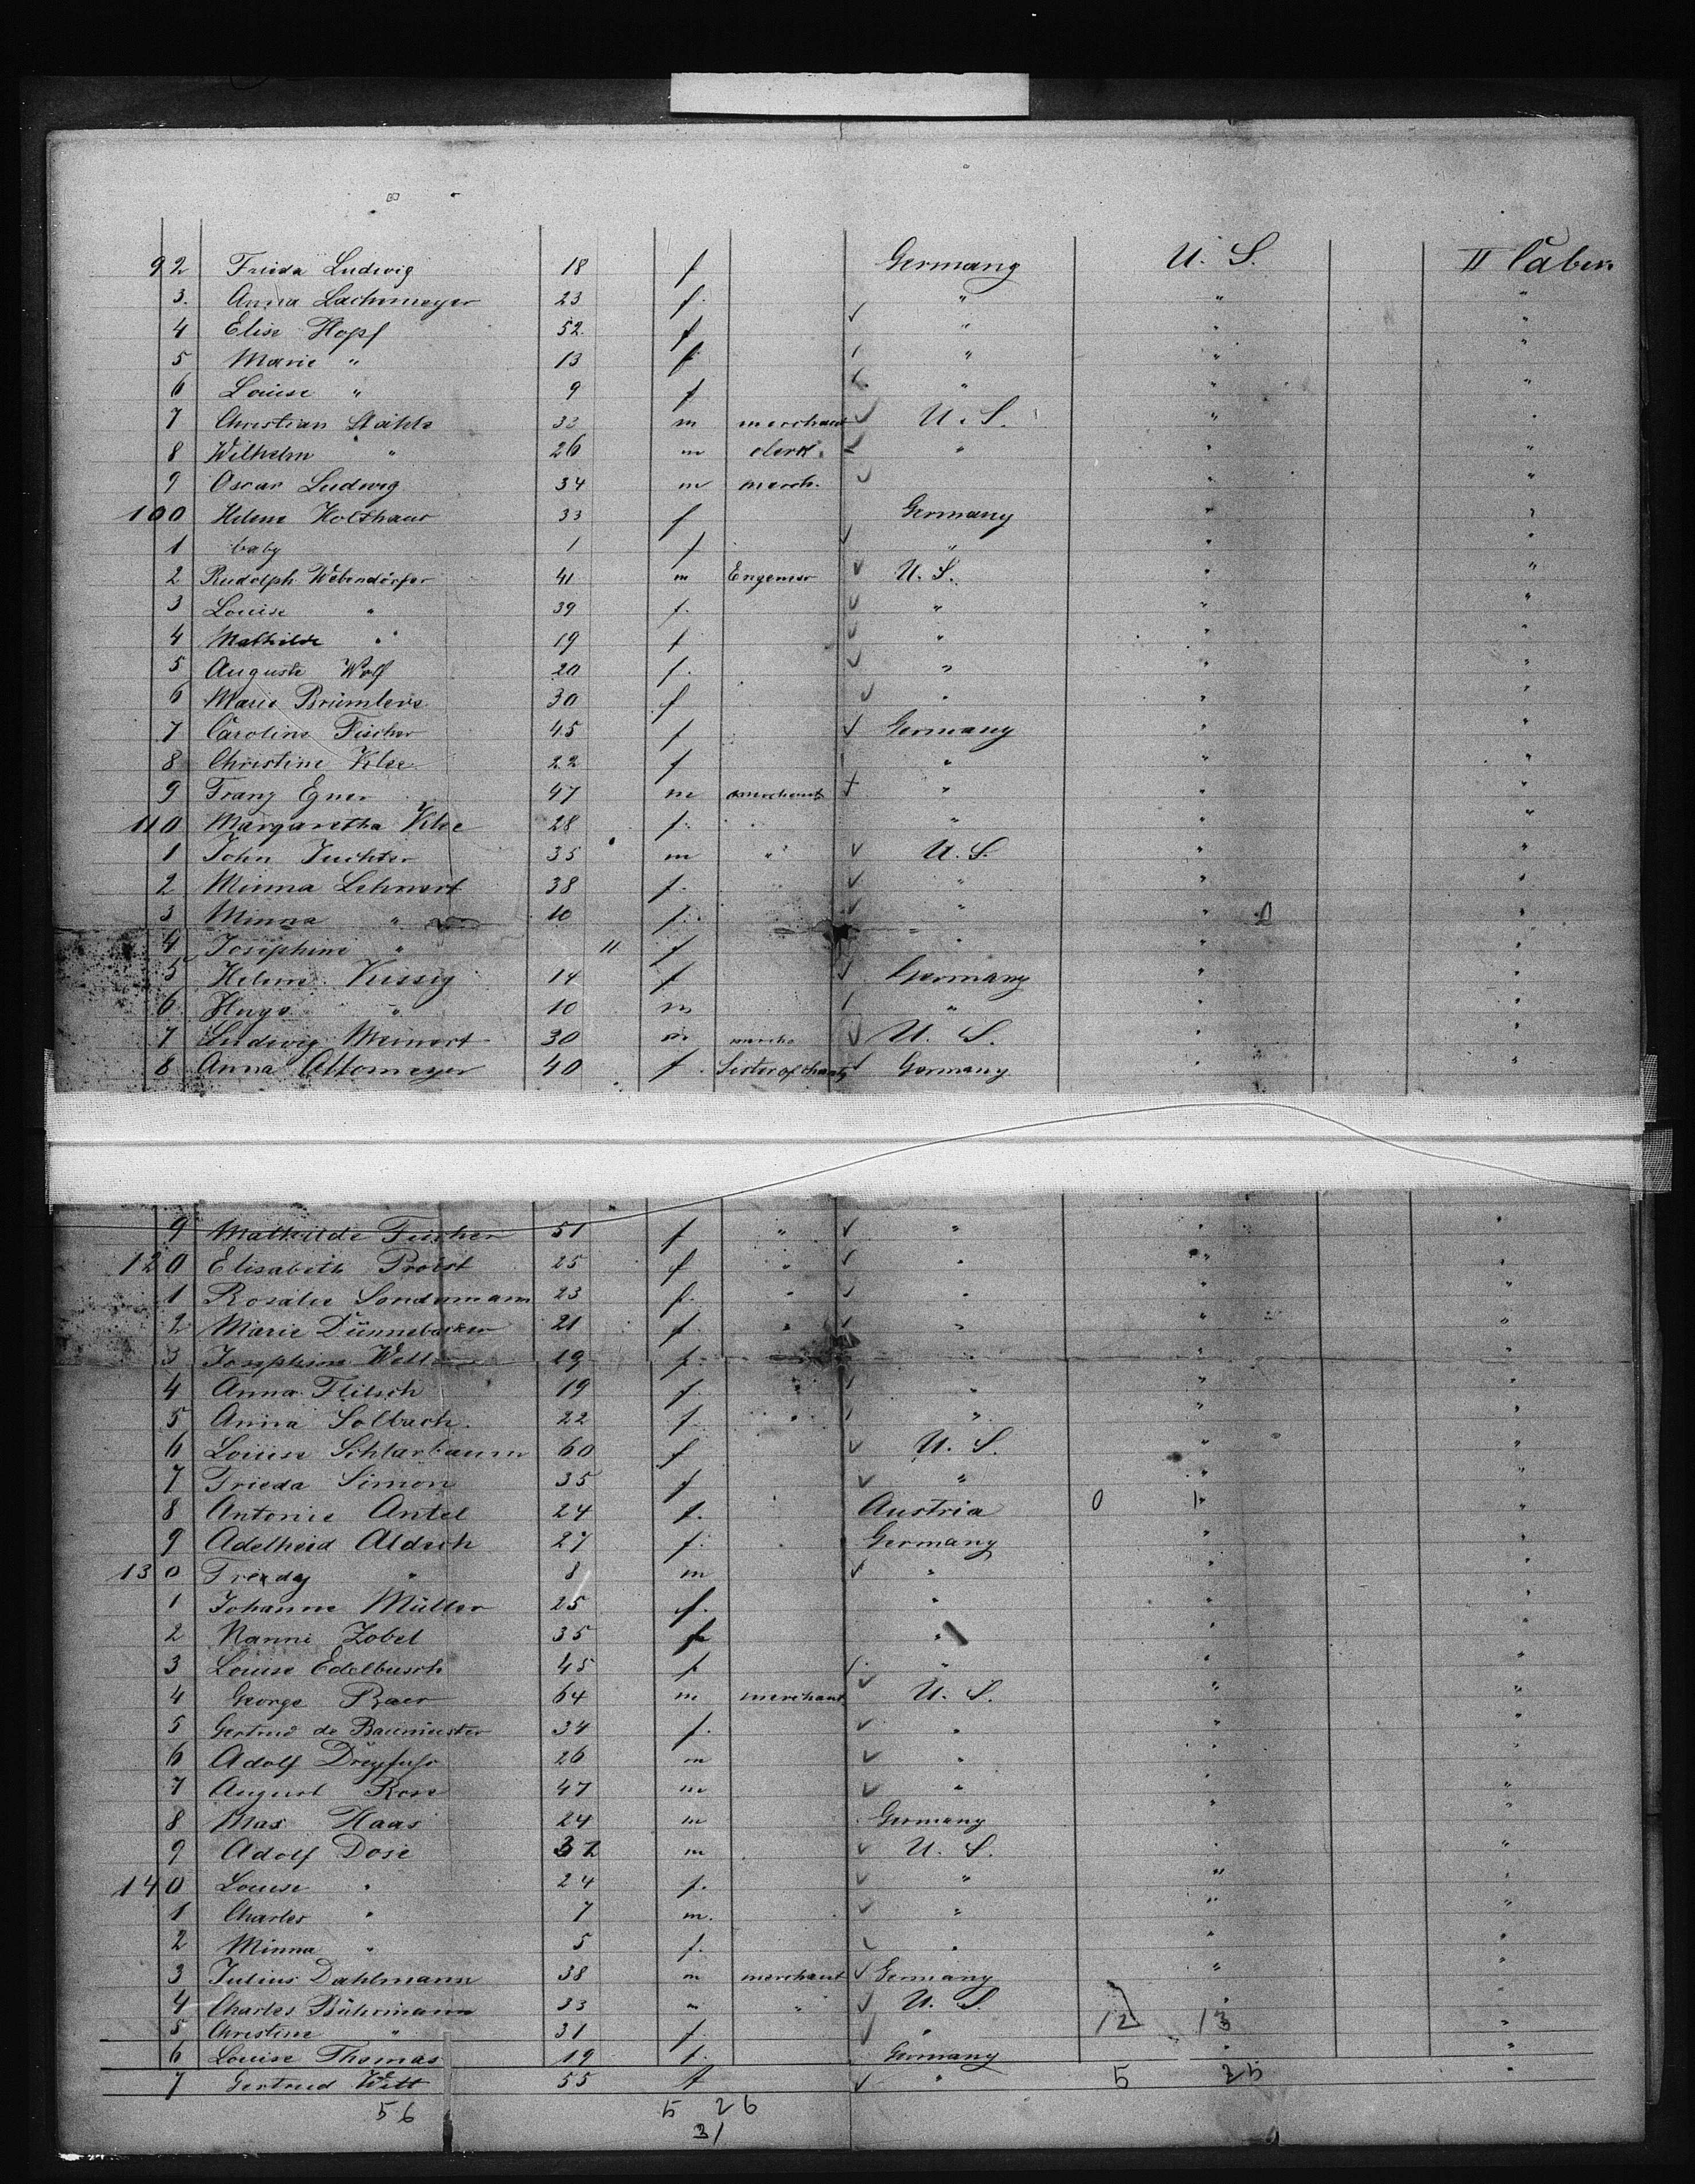 92 Frieda Ludwig 18 f Germany U. S. II Cabin
3. Anna Lachmeyer 23 f. " " "
4 Elise Hopf 52 f " " "
5 Marie " 13 f " " "
6 Louise " 9 f " " "
7 Christian Stahls 33 m merchant U. S. " "
8 Wilhelm " 26 m clerk " " "
9 Oscar Ludwig 34 m merch. " "
100 Helene Holthaus 33 f Germany " "
1 baby 1 f " " "
2 Rudolph Webendörfer 41 m Engeneer U. S. " "
3 Louise " 39 f. " " "
4 Mathilde " 19 f " " "
5 Auguste Wolf 20 f. " " "
6 Marie Brümlers 30 f " " "
7 Caroline Fischer 45 f Germany " "
8 Christine Klee 22 f " " "
9 Franz Egner 47 m merchant " " "
110 Margaretha Klee 28 f. " " "
1 John Juchter 35 m " U. S. " "
2 Minna Lehnert 38 f. " " "
3 Minna " 10 f. " " "
4 Josephine " 11 f " " "
5 Helene Kussig 14 f Germany " "
6 Hugo " 10 m " " "
7 Ludwig Meinert 30 m merch. U. S. " "
8 Anna Altomeyer 40 f. Sister of charity Germany " "
9 Mathilde Fischer 51 f " " " "
120 Elisabeth Probst 25 f " " " "
1 Rosalie Sondermann 23 f. " " " "
2 Marie Dünnebacker 21 f. " " " "
3 Josephine 19 f. " " " "
4 Anna Flitsch 19 f. " " " "
5 Anna Solbach 22 f. " " " "
6 Louise Schlarbaum 60 f U. S. " "
7 Frieda Simon 35 f " " "
8 Antonie Antel 24 f. Austria 0 1 "
9 Adelheid Aldech 27 f. Germany " "
130 Freddy " 8 m " " "
1 Johanne Müller 25 f. " " "
2 Nanni Zobel 35 f " " "
3 Louise Edelbusch 45 f " " "
4 George Baer 64 m merchant U. S. " "
5 Gertrud de Baumeister 34 f. " " "
6 Adolf Dreyfuss 26 m " " "
7 August Rose 47 m " " "
8 Max Haas 24 m Germany " "
9 Adolf Dose 32 m U. S. " "
140 Louise " 24 f. " " "
1 Charles " 7 m. " " "
2 Minna " 5 f. " " "
3 Julius Dahlmann 38 m merchant Germany " "
4 Charles Bührmann 33 m " U. S. " "
5 Christine " 31 f. " 12 13 "
6 Louise Thomas 19 f. Germany " "
7 Gertrud Witt 55 f " 5 25 "
56 5 26
31